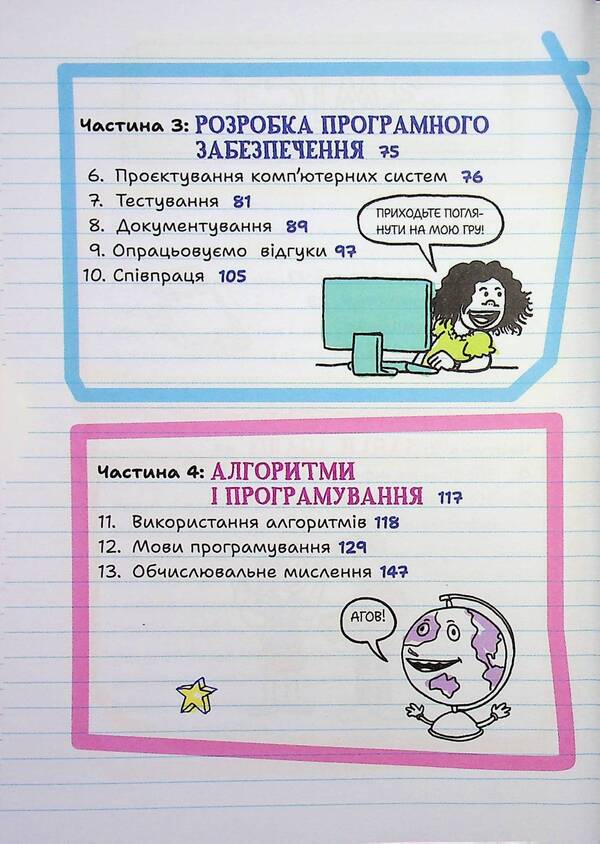 Частина 3: РОЗРОБКА ПРОГРАМНОГО
ЗАБЕЗПЕЧЕННЯ 75
6. Проєктування комп'ютерних систем 76
7. Тестування 81
8. Документування 89
9. Опрацьовуємо відгуки 97
10. Співпраця 105
ПРИХОДЬТЕ ПОГЛЯ-
НУТИ НА МОЮ ГРУ!
Частина 4: АЛГОРИТМИ
І ПРОГРАМУВАННЯ 117
11. Використання алгоритмів 118
12. Мови програмування 129
13. Обчислювальне мислення 147
АГОВ!